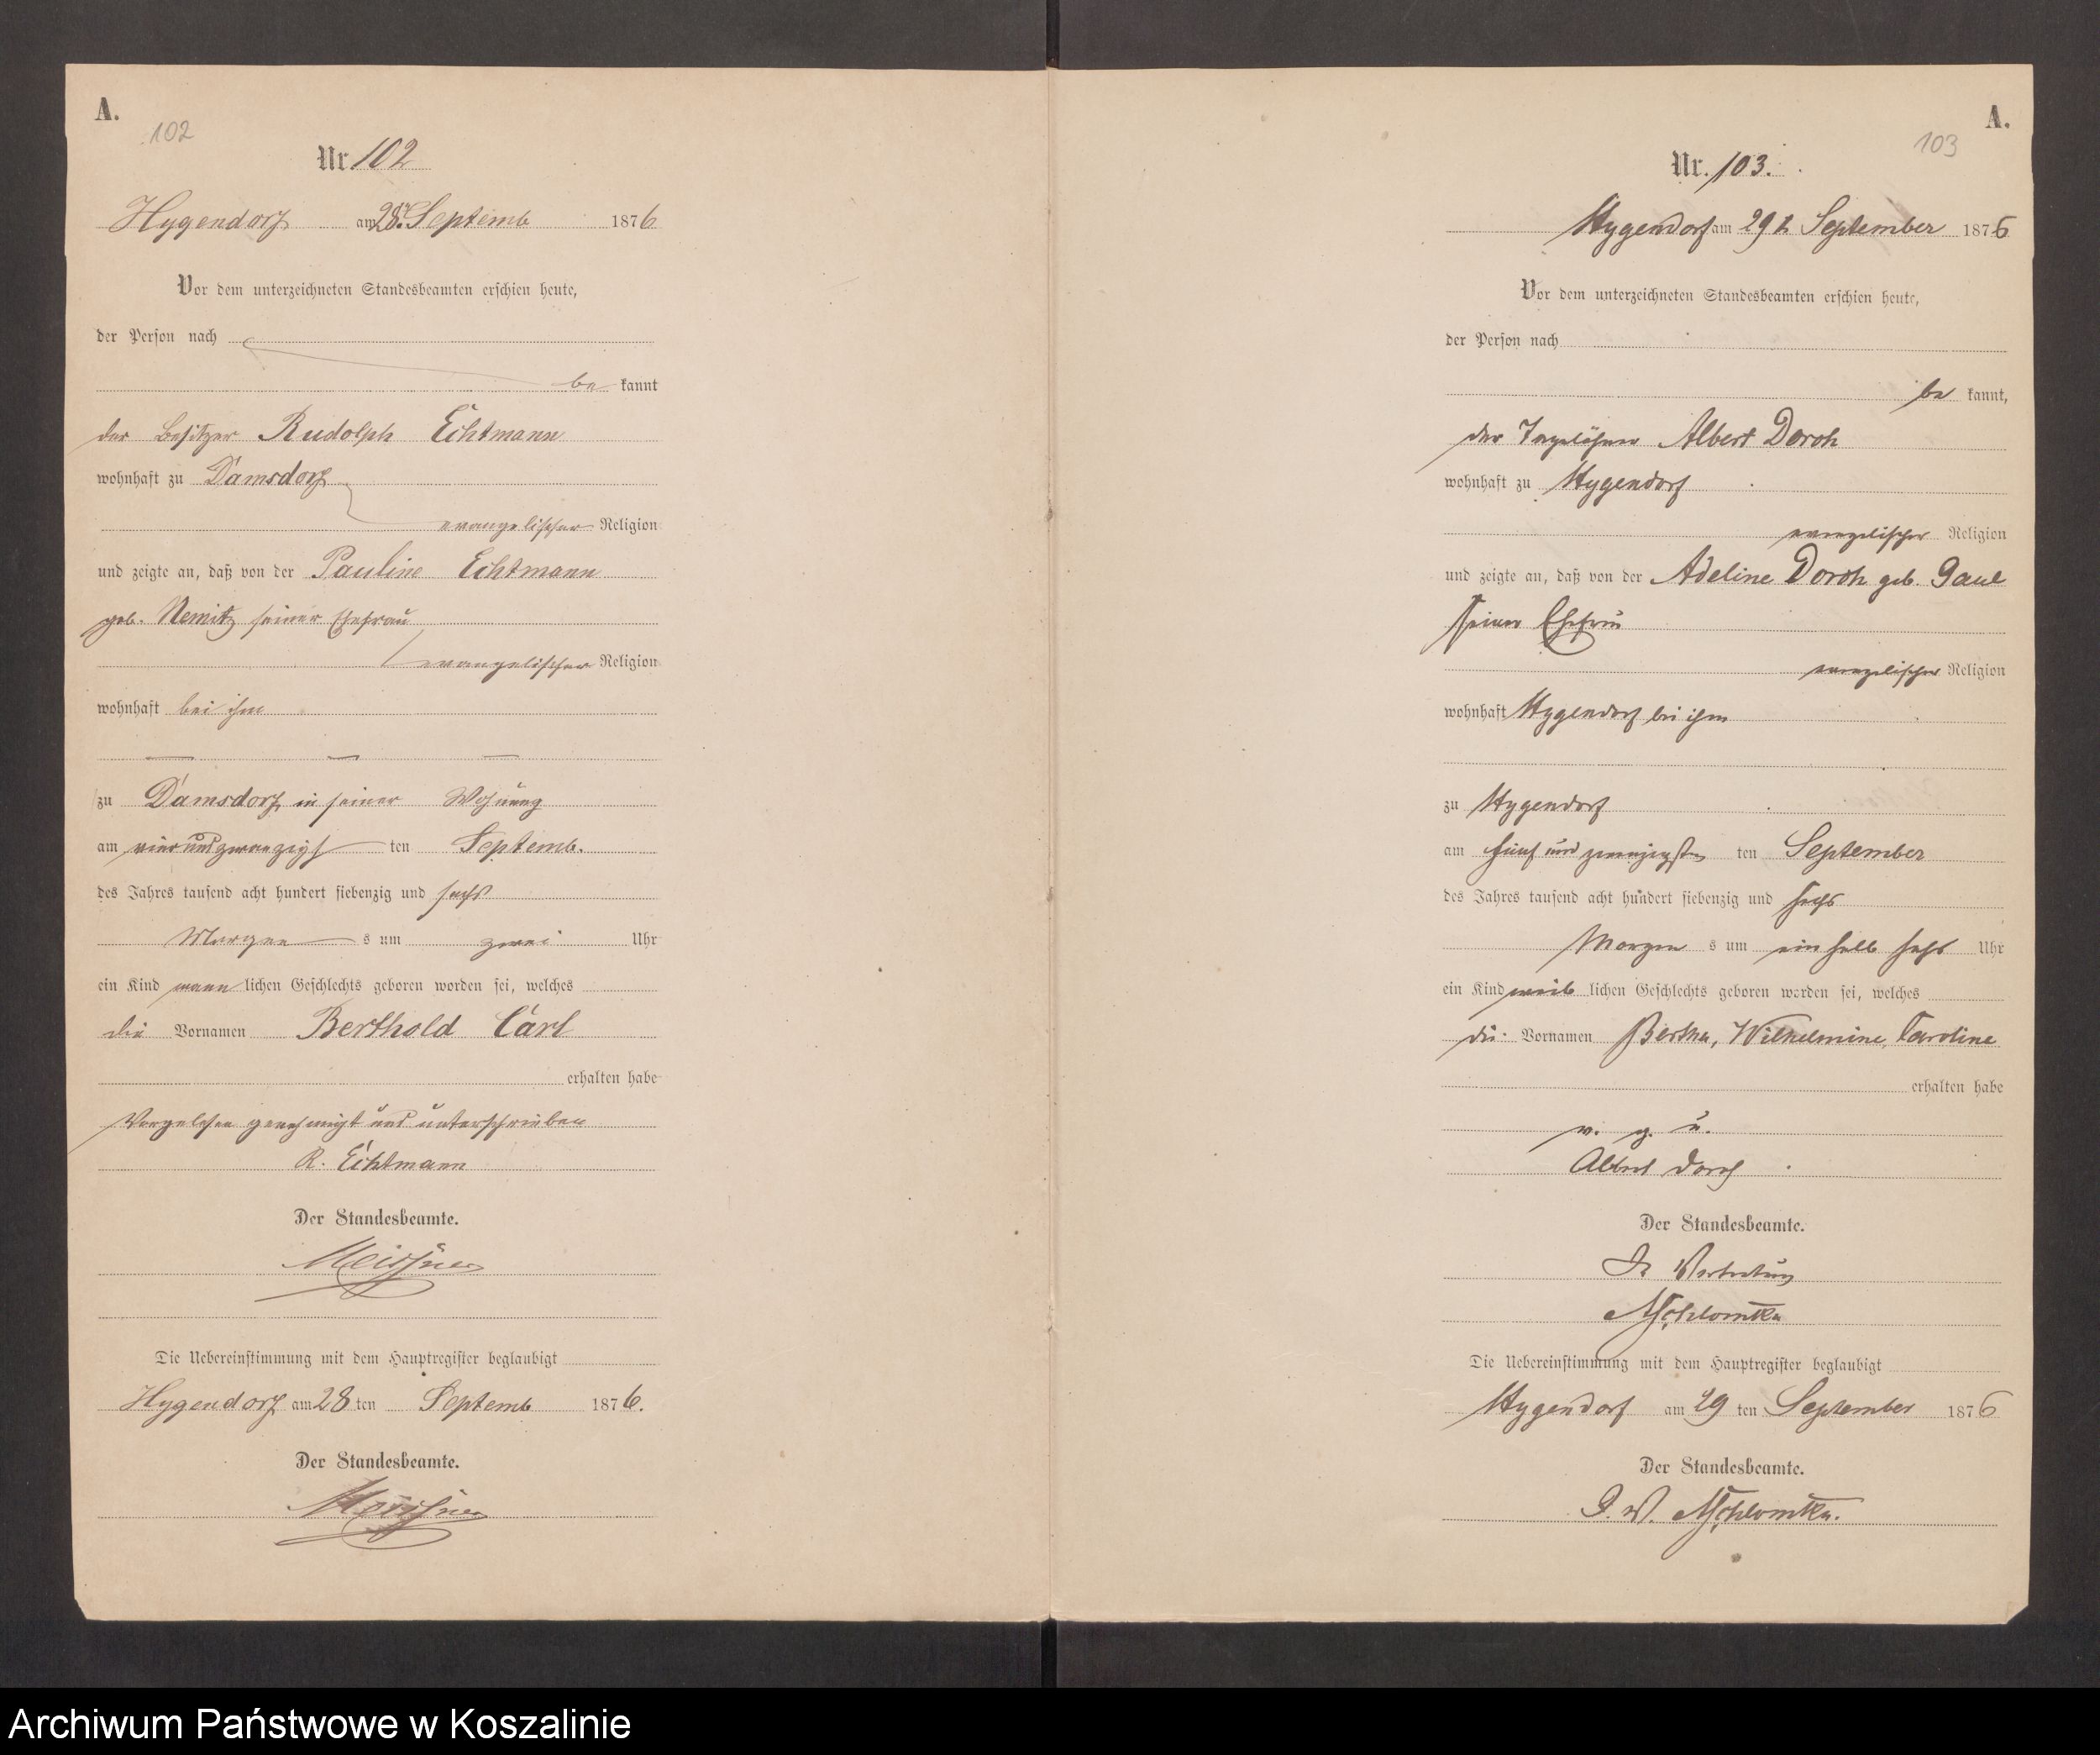 A.
102
Nr. 102
Hygendorf am 28. Septemb 1876
Vor dem unterzeichneten Standesbeamten erschien heute,
der Person nach
be kannt
der Besitzer Rudolph Echtmann
wohnhaft zu Damsdorf
evangelischer Religion
und zeigte an, daß von der Pauline Echtmann
geb. Nemitz seiner Ehefrau
evangelischer Religion
wohnhaft bei ihm
zu Damsdorf in seiner Wohnung
am vierundzwanzigst ten Septemb.
des Jahres tausend acht hundert siebenzig und sechs
Morgen s um zwei Uhr
ein Kind männ lichen Geschlechts geboren worden sei, welches
die Vornamen Berthold Carl
erhalten habe
Vorgelesen genehmigt und unterschrieben
R. Echtmann
Der Standesbeamte.
Meissner
Die Uebereinstimmung mit dem Hauptregister beglaubigt
Hygendorf am 28 ten Septemb 1876.
Der Standesbeamte.
Meissner
A.
103
Nr. 103.
Hygendorf am 29 t September 1876
Vor dem unterzeichneten Standesbeamten erschien heute,
der Person nach
be kannt,
der Tagelöhner Albert Doroh
wohnhaft zu Hygendorf
evangelischer Religion
und zeigte an, daß von der Adeline Doroh geb. Gaul
seiner Ehefrau
evangelischer Religion
wohnhaft Hygendorf bei ihm
zu Hygendorf
am fünf und zwanzigsten ten September
des Jahres tausend acht hundert siebenzig und sechs
Morgen s um ein halb sechs Uhr
ein Kind weib lichen Geschlechts geboren worden sei, welches
die Vornamen Bertha, Wilhelmine, Caroline
erhalten habe
v. g. u.
Albert Doroh
Der Standesbeamte.
In Vertretung
Die Uebereinstimmung mit dem Hauptregister beglaubigt
Hygendorf am 29 ten September 1876
Der Standesbeamte.
I. V.
Archiwum Państwowe w Koszalinie